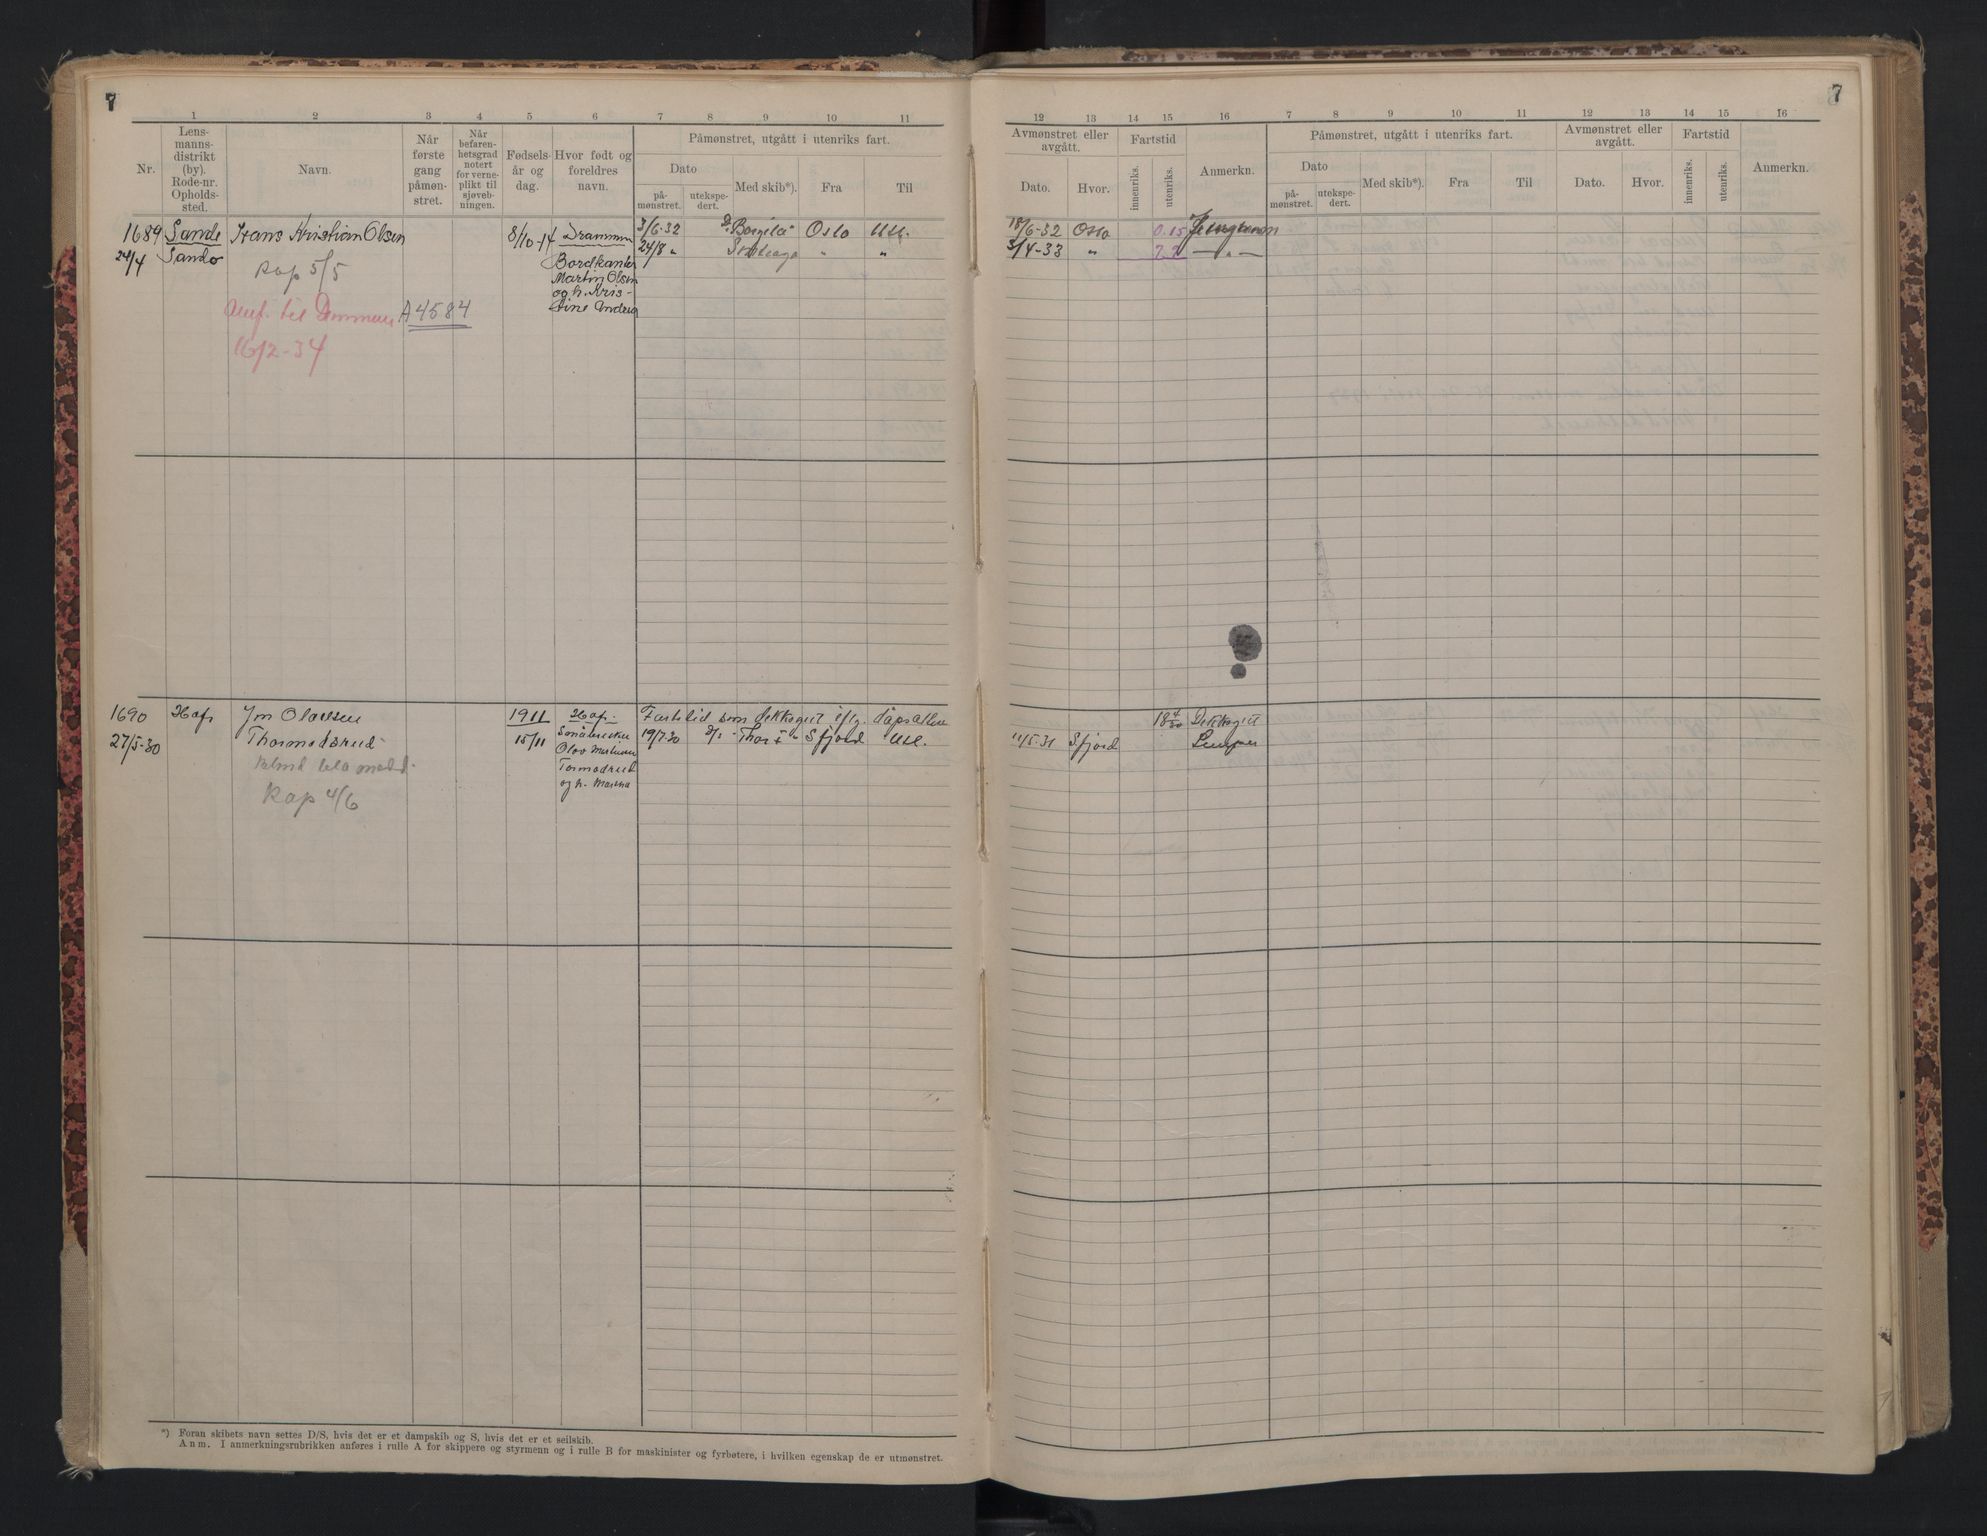 7
7
1 2 3 4 5 6 7 8 9 10 11
Nr.
Lens-
manns-
distrikt
(by).
Rode-nr.
Opholds-
sted.
Navn.
Når
første
gang
påmøn-
stret.
Når
befaren-
hetsgrad
notert
for verne-
plikt til
sjøveb-
ningen.
Fødsels-
år og
dag.
Hvor født og
foreldres
navn.
Påmønstret, utgått i utenriks fart.
Dato
på-
mønstret.
utekspe-
dert.
Med skib*).
Fra
Til
12 13 14 15 16 7 8 9 10 11 12 13 14 15 16
Avmønstret eller
avgått.
Dato.
Hvor.
Fartstid
innenriks.
utenriks.
Anmerkn.
Påmønstret, utgått i utenriks fart.
Dato
på-
mønstret.
utekspe-
dert.
Med skib*).
Fra
Til
Avmønstret eller
avgått.
Dato.
Hvor.
Fartstid
innenriks.
utenriks.
Anmerkn.
1689 Sande Hans Kristian Olsen 8/10-14 Drammen 3/6-32 Oslo Utl. 18/6-32 Oslo 0.15
24/4 Sande 24/8 " " " 3/4-33 " 7.7 "
Rap 5/5
Bordkanter
Martin Olsen
og h. Kris-
tine
til Drammen A 4584
16/2-34
1690 Hof Thormodsrud
27/5-30
1911
15/11
Hof.
Olav
Tormodsrud
og h.
Fartstid som dekksgut iflg.
19/7-30 D/S "Thor I" Sfjord Utl.
18 4/30 Dekksgut
11/5-31 Sfjord Lemper
Rap 4/6
*) Foran skibets navn settes D/S, hvis det er et dampskib og S, hvis det er et seilskib.
Anm. I anmerkningsrubrikken anføres i rulle A for skippere og styrmenn og i rulle B for maskinister og fyrbøtere, i hvilken egenskap de er utmønstret.